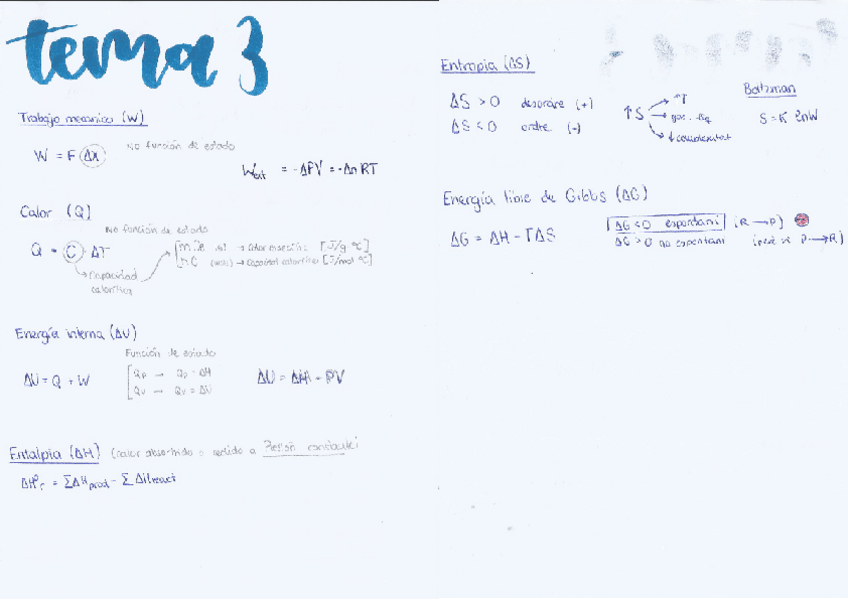 tema 3
Trabajo mecanico (W)
W = F Δx
No función de estado
Wext = -ΔPV = -Δn RT
Calor (Q)
No función de estado
Q = C · ΔT
Capacidad
calorífica
Energía interna (ΔU)
Función de estado
ΔU = Q + W
Qp → Qp = ΔH
Qv → Qv = ΔU
ΔU = ΔH - PV
Entalpía (ΔH) (calor absorbido o cedido a Presión constante)
= ΣΔHprod - ΣΔHreact
Entropia (ΔS)
ΔS > 0 desordre (+)
ΔS < 0 ordre (-)
↑S
↑T
gas
Boltzman
S = K lnW
Energía libre de Gibbs (ΔG)
ΔG = ΔH - TΔS
ΔG < 0 espontani (R → P)
ΔG > 0 no espontani (però si P → R)